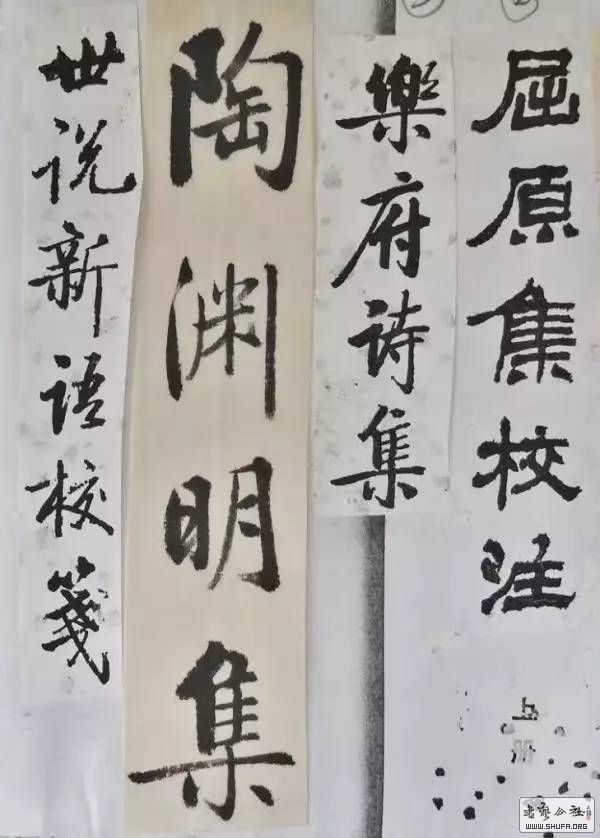 屈原集校注
上册
樂府诗集
陶渊明集
世说新语校箋
书艺公社
WWW.SHUFA.ORG